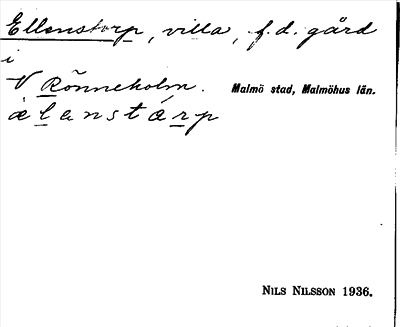 Ellenstorp, villa, f.d. gård
i
V Rönneholm. Malmö stad, Malmöhus län.
älanstårp
NILS NILSSON 1936.